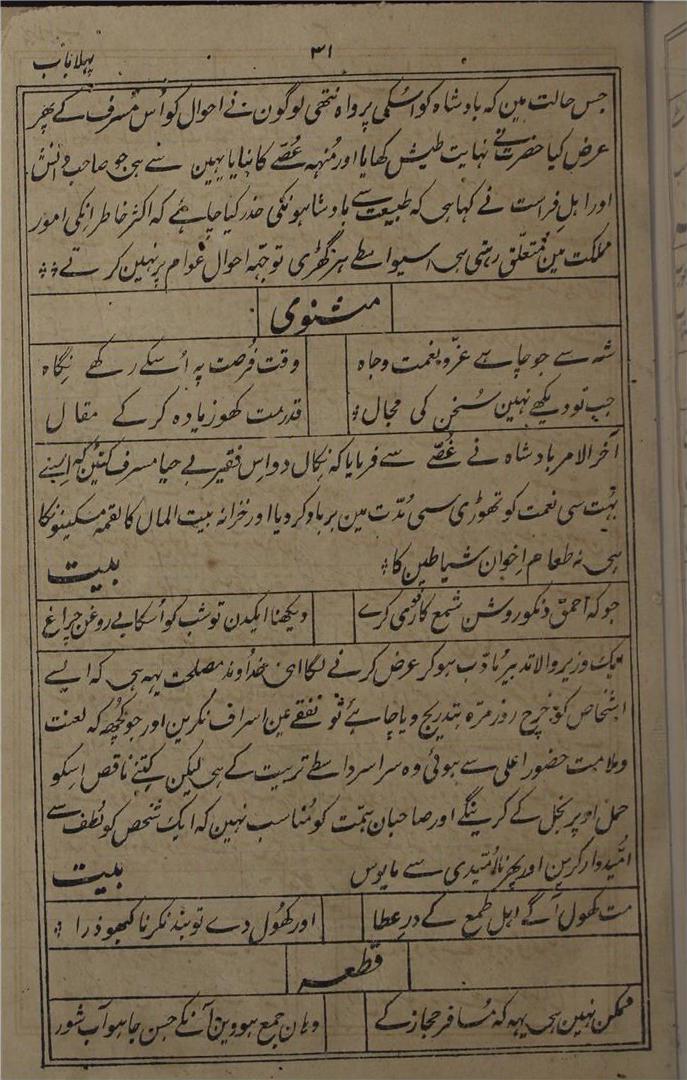 پہلا باب
۳۱
جس حالت مین کہ بادشاہ کو اُسکی پرواہ نتھی لوگون نے احوال کو اُس مُسرف کے پھر
عرض کیا حضرت نے نہایت طیش کھایا اور مُنہہ غُصّے کا بنایا یہین سے ہی جو صاحب دانش
اور اہلِ فراست نے کہا ہی کہ طبیعت سے بادشاہونکی حذر کیا چاہئے کہ اکثر خاطر اِنکی امور
مملکت مین مُتعلّق رہتی ہی اسیواسطے ہر گھڑی توجّہہ احوال عوام پر نہین کرتے
مثنوی
شہ سے جو چاہے عزّ و نعمت و جاہ
وقت فُرصت پہ اُسکے رکھے نگاہ
جب تو دیکھے نہین سُخن کی مجال
قدر مت کھو زیادہ کر کے مقال
آخر الامر بادشاہ نے غُصّے سے فرمایا کہ نِکال دو اِس فقیر بے حیا مسرف کتئین کہ اِسنے
بہُت سی نعمت کو تھوڑی سی مُدّت مین برباد کر دیا اور خزانہ بیت المال کا لقمہ مسکینونکا
ہی نہ طعام اِخوان شیاطین کا
بیت
جو کہ احمق دنکو روشن شمع کافوری کرے
دیکھنا ایکدن تو شب کو اُسکا بے روغن چراغ
ایک وزیر والا تدبیر مُادّب ہو کر عرض کرنے لگا ای خُداوند مصلحت یہہ ہی کہ ایسے
اشخاص کو خرچ روزمرّہ بتدریج دیا چاہئے تو نفقے مین اسراف نکرین اور جو کچُھہ کہ لعنت
و ملامت حضور اعلی سے ہوئی وہ سراسر واسطے تربیت کے ہی لیکن کتنے ناقص اِسکو
حمل اوپر بخل کے کرینگے اور صاحبان ہمّت کو مُناسب نہین کہ ایک شخص کو لُطف سے
اُمّیدوار کرین اور پھر نااُمّیدی سے مایوس
بیت
مت کھول آگے اہل طمع کے درِ عطا
اور کھُول دے تو بند نکرنا کبھو ذرا
قطعہ
ممکن نہین ہی یہہ کہ مُسافر حجاز کے
وہان جمع ہووین آنکے جس جا ہو آب شور